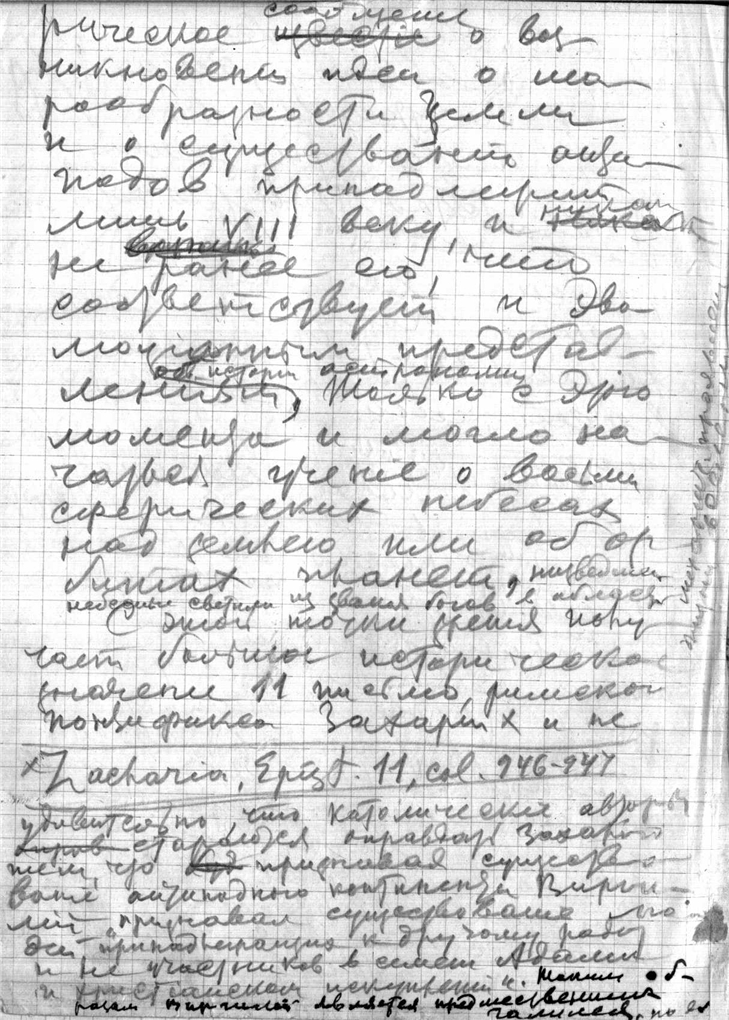 сообщение
рическое ~~известие~~ о воз-
никновении идеи о ша-
рообразности Земли
и о существовании анти-
подов принадлежит
лишь VIII веку, и никак
не ранее его, что
соответствует и эво-
люционным представ-
об истории астрономии
лениям, Только с этого
момента и могло на-
чаться учение о восьми
сферических небесах
над землею или об ор-
битах планет, низведших
небесные светила из звания богов в
С этой точки зрения полу-
чает большое историческое
значение 11 письмо римского
понтифика Захария x и не
x Zacharia, Epist. 11, col. 946-947
удивительно, что католические авторы
стараются оправдать Захарию
тем, что признавая существо-
вание антиподного континента Вирги-
лий „признавал существование лю-
дей принадлежащих к другому роду
и не участников в семье Адама
и христианском искуплении". Таким об-
разом Виргилий является предшественником
Галилея, но